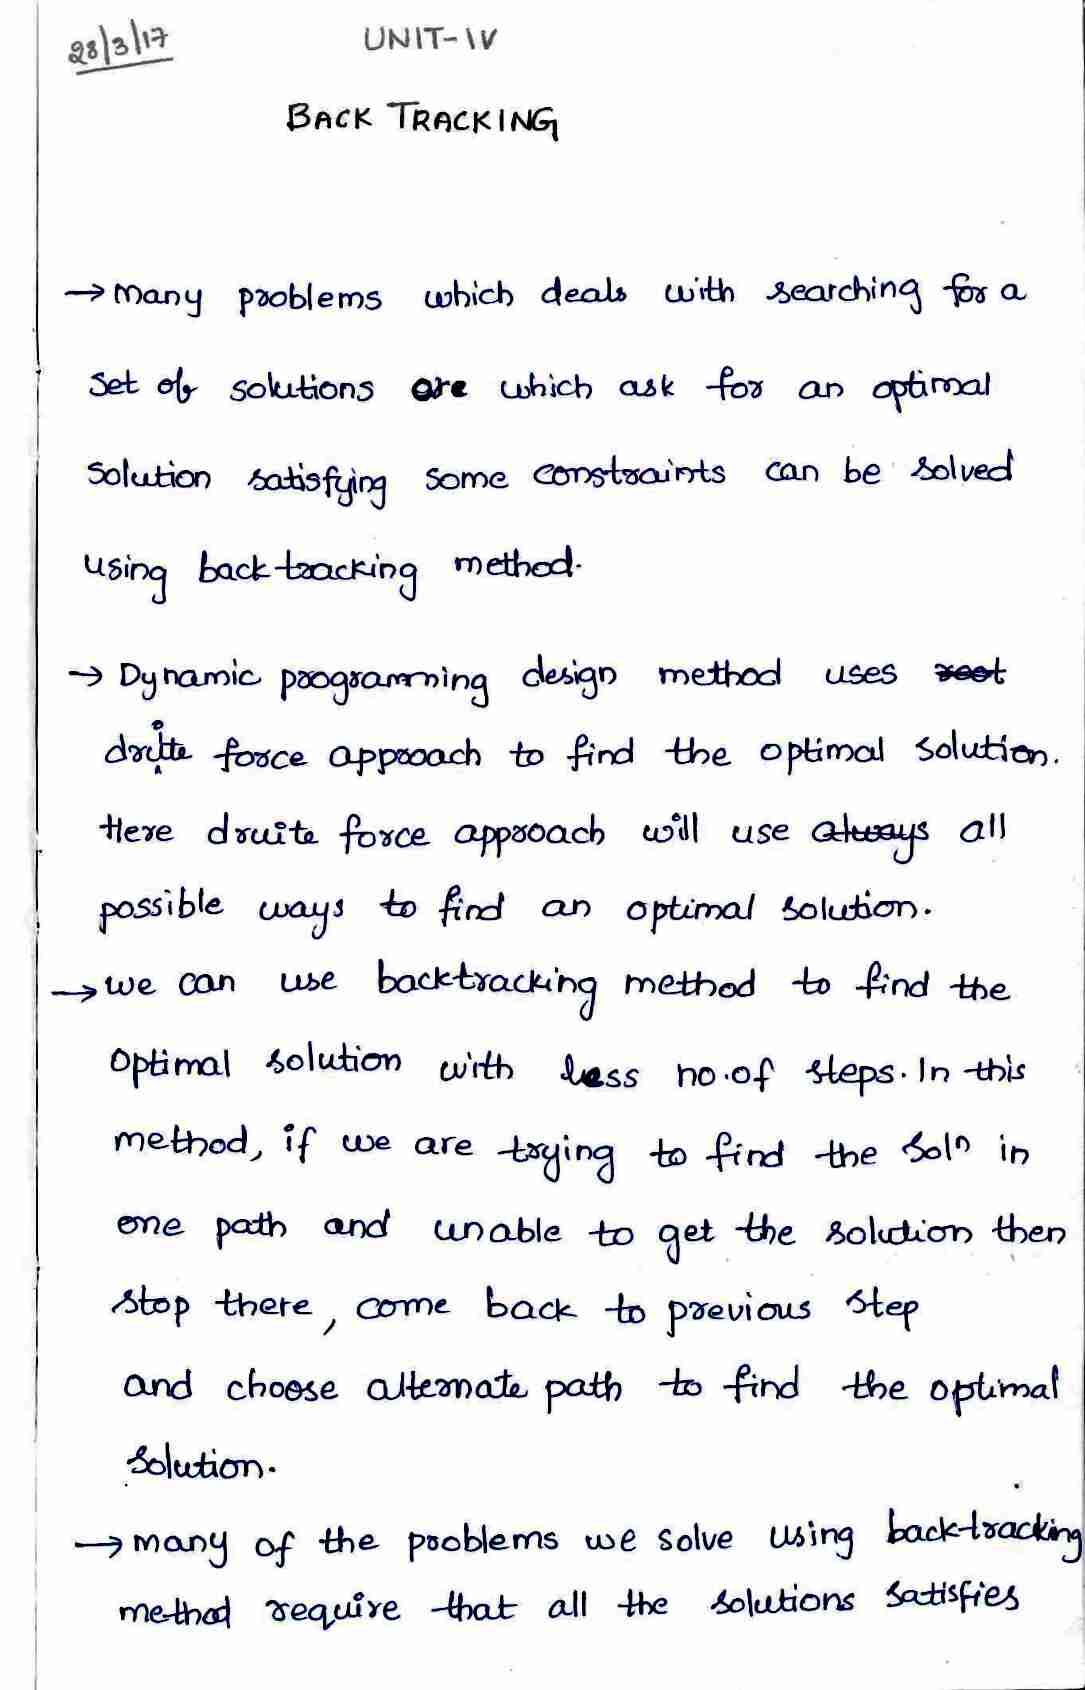 28/3/17
UNIT-IV
BACK TRACKING
→ Many problems which deals with searching for a
set of solutions are which ask for an optimal
solution satisfying some constraints can be solved
using back tracking method.
→ Dynamic programming design method uses root
druite force approach to find the optimal solution.
Here druite force approach will use always all
possible ways to find an optimal solution.
→ we can use backtracking method to find the
optimal solution with less no.of steps. In this
method, if we are trying to find the Solⁿ in
one path and unable to get the solution then
stop there, come back to previous step
and choose alternate path to find the optimal
solution.
→ many of the problems we solve using back-tracking
method require that all the solutions satisfies